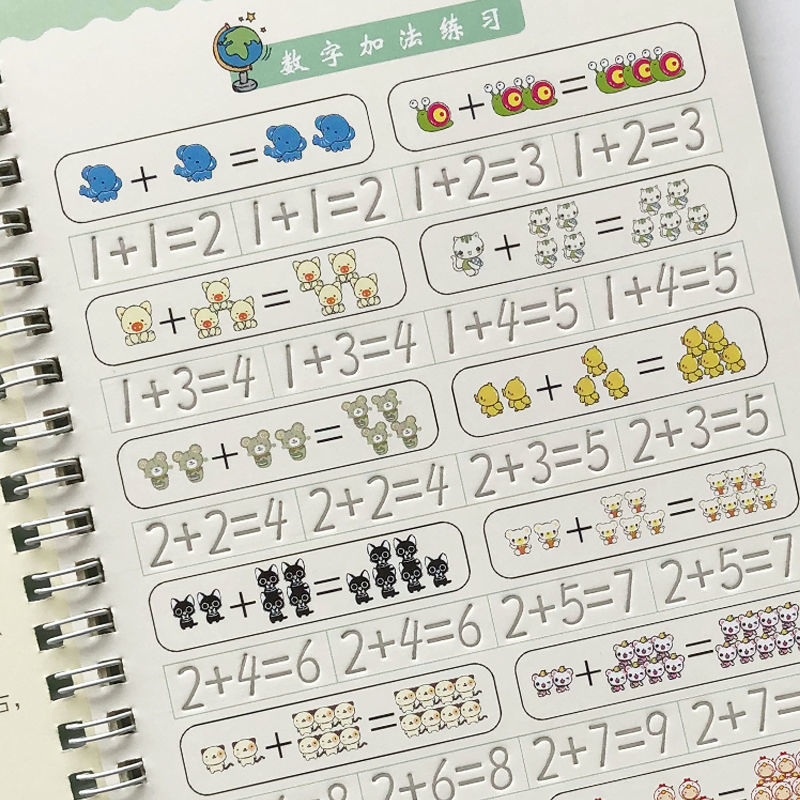 数字加法练习
+ = + =
1+1=2 1+1=2 1+2=3 1+2=3
+ = + =
1+3=4 1+3=4 1+4=5 1+4=5
+ = + =
2+2=4 2+2=4 2+3=5 2+3=5
+ = + =
2+4=6 2+4=6 2+5=7 2+5=7
+ = + =
=8 2+6=8 2+7=9 2+7=